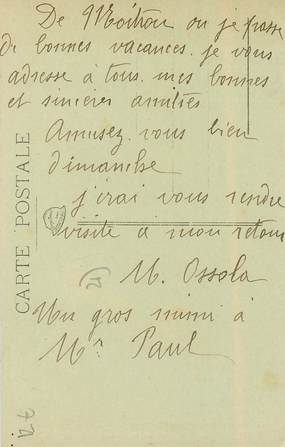 De Moitron ou je passe
de bonnes vacances. je vous
adresse à tous mes bonnes
et sincères amitiés
Amusez vous bien
dimanche
j'irai vous rendre
visite à mon retour
M. Ossola
Un gros mimi à
Mr Paul
CARTE POSTALE